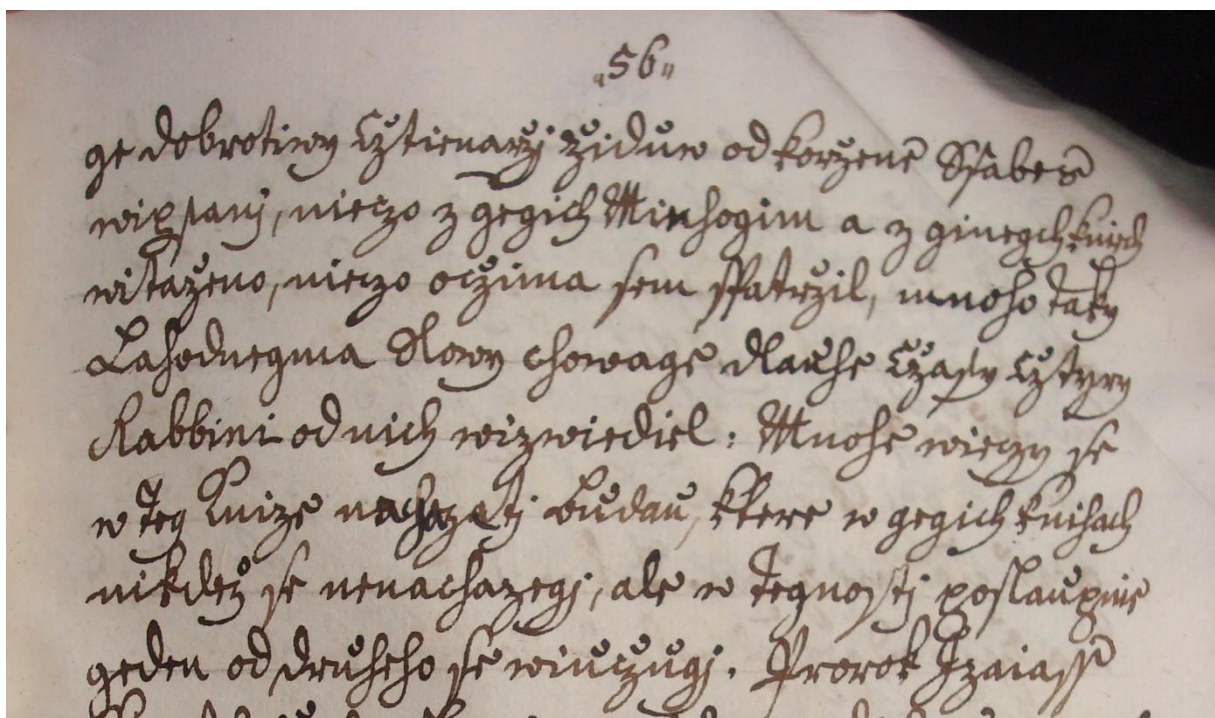 „56„
ge dobrotiwy Cztienarzj Ziduw od korzene Ssabes
wipsanj, nieczo z gegich Minhogim a z ginegch knich
witaženo, nieczo oczima sem spatrzil, mnoho taky
Lahodnegma Slowy chowage dlauhe Czasy Cztyry
Rabbini od nich wizwiediel: Mnohe wieczy se
w teg Knize nachazetj Budau, ktere w gegich knihach
nikdež se nenachazegj, ale w tegnostj poslaupnie
geden od druheho se wiuczugj. Prorok Izaiass